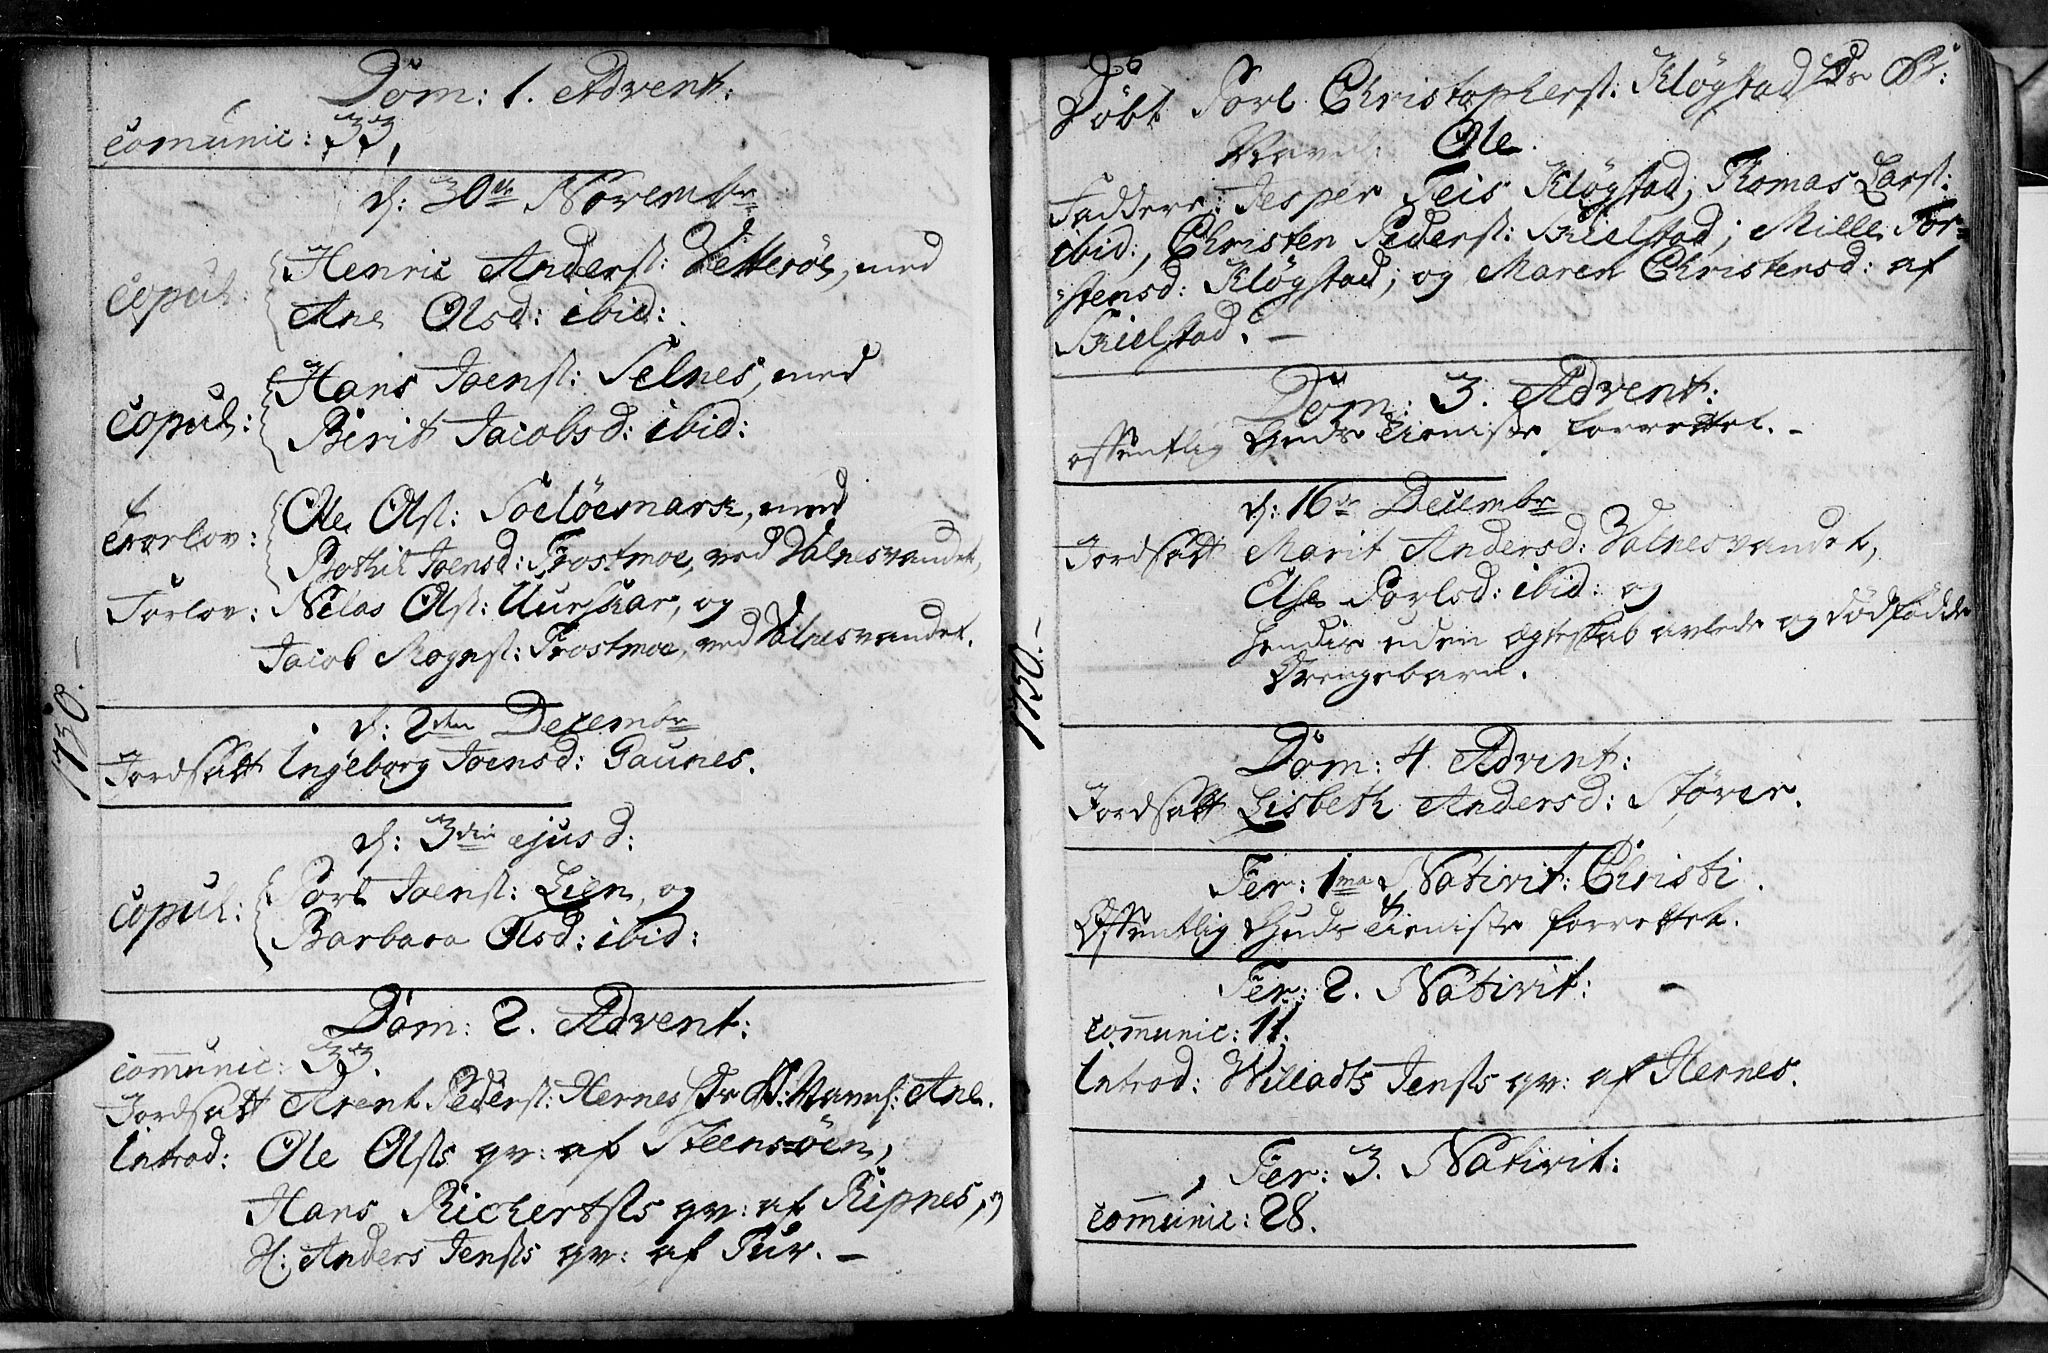 1750.
Dom: 1. Advent:
Comunic: 33,
d: 30te Novembr
Copul: Henric Anderss: Zetterøe, med
Ane Olsd: ibid:
Copul: Hans Joenss: Selnes, med
Berit Jacobsd: ibid:
Trorlov: Ole Olss: Soeløesmark, med
Bothil Joensd: Frostmoe, ved Valnesvandet,
Forlov: Nilas Olss: Uurskar, og
Jacob Mognss: Frostmoe, ved Valnesvandet.
d: 2den Decembr
Jordsatt Ingeborg Joensd: Gaunes.
d: 3die ejusd:
Copul: Povl Joenss: Lien, og
Barbara Olsd: ibid:
Dom: 2. Advent:
Communic: 33.
Jordsatt Arent Pederss: Hernes Navnl: Ane.
Introd: Ole Olss qv: af Steensøen,
Hans Richertss qv: af Ripnes, og
H: Anders Jenss qv: af Tur. —
1750.
Døbt Povl Christopherss: Kløgstad
Navnl: Ole.
Faddere: Jesper Teis Kløgstad; Thomas Larss:
ibid:, Christen Pederss: Skielstad; Mille Tor-
stensd: Kløgstad; og Maren Christensd: af
Skielstad. —
Dom: 3. Advent:
offentlig Guds Tieniste forrettet. —
d: 16de Decembr
Jordsatt Marit Andersd: Valnesvandet,
Else Povlsd: ibid: og
hendis uden Egteskab avlede og dødfødde
Drengebarn.
Dom: 4. Advent:
Jordsatt Lisbeth Andersd: Støver.
Fer: 1ma Nativit: Christi.
Offentlig Guds Tieniste forrettet.
Fer: 2. Nativit:
Communic: 11.
Introd: Willadts Jenss qv: af Hernes.
Fer: 3. Nativit:
Communic: 28.